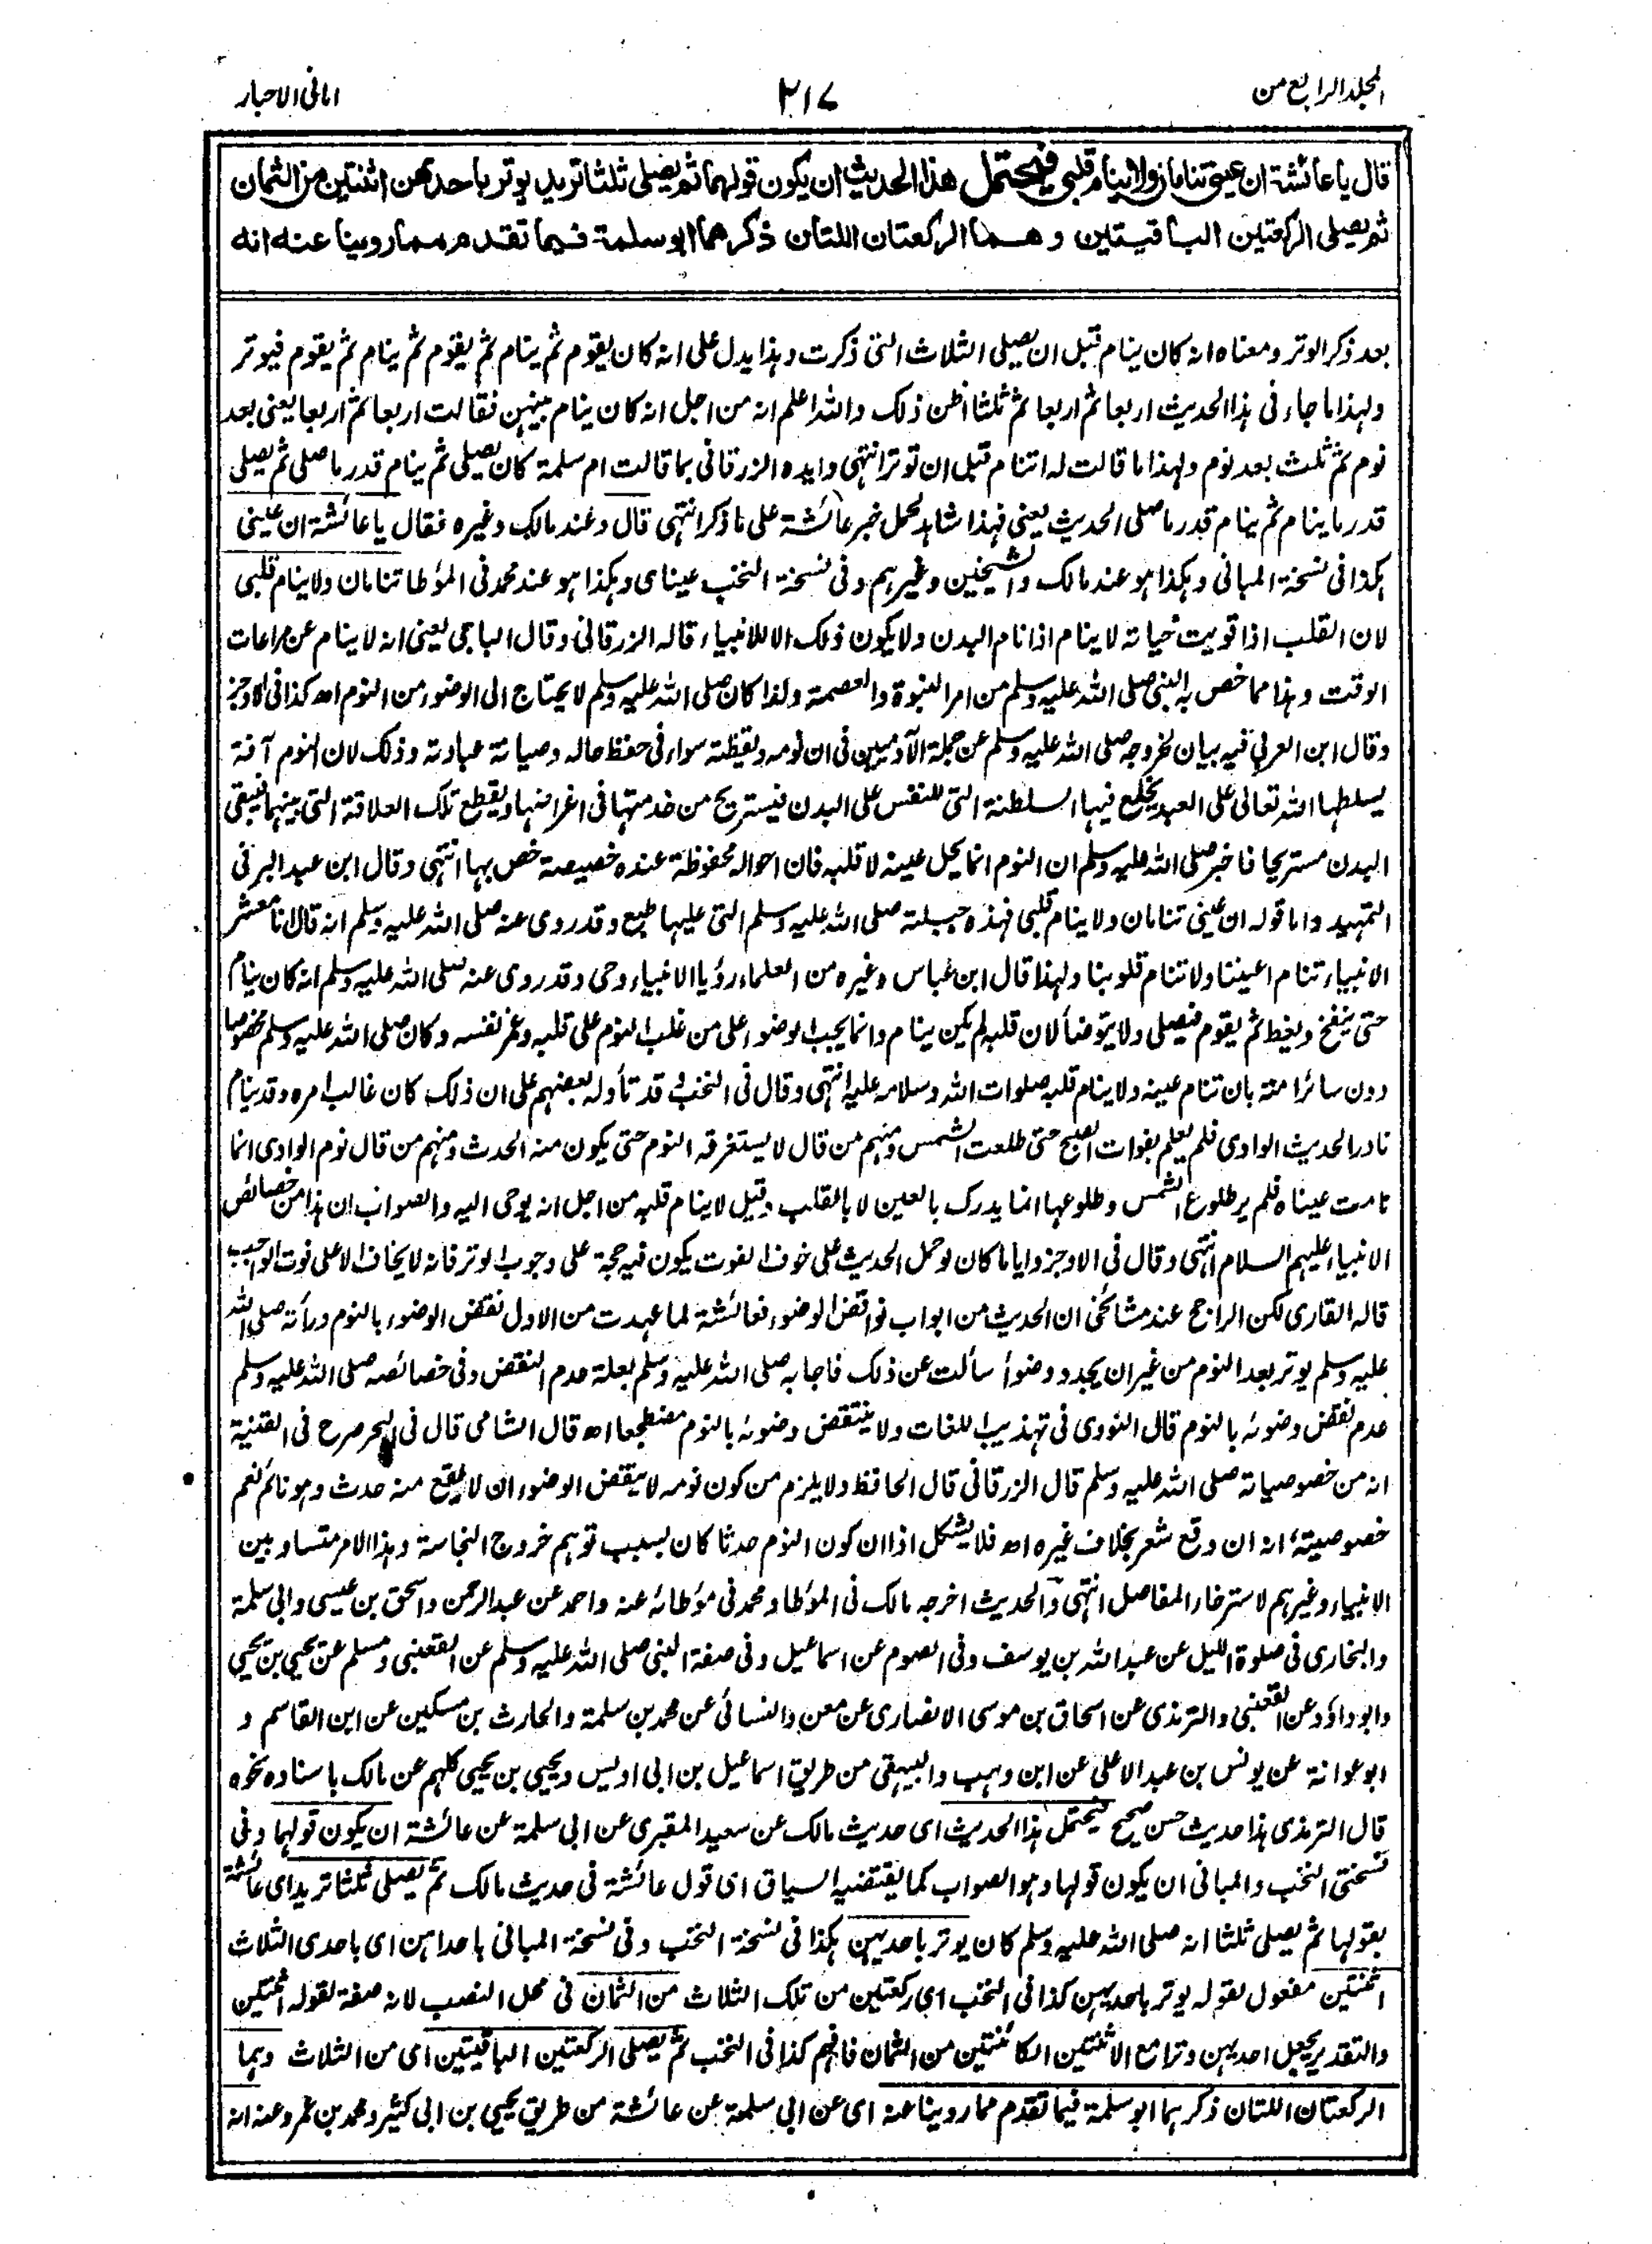 المجلد الرابع من
٢١٧
امانی الاحبار
قال يا عائشة ان عينى تنامان ولا ينام قلبى فيحتمل هذا الحديث ان يكون قولهما ثم يصلى ثلثا تريد يوتر باحدهن اثنتين من الثمان
ثم يصلى الركعتين الباقيتين وهما الركعتان اللتان ذكرهما ابو سلمة فيما تقدم مما روينا عنه انه
بعد ذكر الوتر ومعناه انه كان ينام قبل ان يصلى الثلاث التى ذكرت وهذا يدل على انه كان يقوم ثم ينام ثم يقوم ثم ينام ثم يقوم فيوتر
ولهذا ما جاء فى هذا الحديث اربعا ثم اربعا ثم ثلثا اظن ذلك والله اعلم انه من اجل انه كان ينام بينهن فقالت اربعا ثم اربعا يعنى بعد
نوم ثم ثلث بعد نوم ولهذا ما قالت له اتنام قبل ان توتر انتهى وايده الزرقانى بما قالت ام سلمة كان يصلى ثم ينام قدر ما صلى ثم يصلى
قدر ما ينام ثم ينام قدر ما صلى الحديث يعنى فهذا شاهد لحمل خبر عائشة على ما ذكر انتهى قال وعند مالك وغيره فقال يا عائشة ان عينى
هكذا فى نسخة المبانى وهكذا هو عند مالك والشيخين وغيرهم وفى نسخة النخب عيناى وهكذا هو عند محمد فى المؤطا تنامان ولا ينام قلبى
لان القلب اذا قويت حياته لا ينام اذا نام البدن ولا يكون ذلك الا للانبياء قاله الزرقانى وقال الباجى يعنى انه لا ينام عن مراعات
الوقت وهذا مما خص به النبى صلى الله عليه وسلم من امر النبوة والعصمة ولذا كان صلى الله عليه وسلم لا يحتاج الى الوضوء من النوم اه كذا فى الاوجز
وقال ابن العربى فيه بيان لخروجه صلى الله عليه وسلم عن جملة الآدميين فى ان نومه ويقظته سواء فى حفظ حاله وصيانة عبادته وذلك لان النوم آفة
يسلطها الله تعالى على العبد يخلع فيها السلطنة التى للنفس على البدن فيستريح من خدمتها فى اغراضها ويقطع تلك العلاقة التى بينهما فيبقى
البدن مستريحا فاخبر صلى الله عليه وسلم ان النوم انما يحل عينه لا قلبه فان احواله محفوظة عنده خصيصة خص بها انتهى وقال ابن عبد البر فى
التمهيد واما قوله ان عينى تنامان ولا ينام قلبى فهذه جبلته صلى الله عليه وسلم التى عليها طبع وقد روى عنه صلى الله عليه وسلم انه قال انا معشر
الانبياء تنام اعيننا ولا تنام قلوبنا ولهذا قال ابن عباس وغيره من العلماء رؤيا الانبياء وحى وقد روى عنه صلى الله عليه وسلم انه كان ينام
حتى ينفخ ويغط ثم يقوم فيصلى ولا يتوضأ لان قلبه لم يكن ينام وانما يجب الوضوء على من غلب النوم على قلبه وغمر نفسه وكان صلى الله عليه وسلم مخصوصا
دون سائر امته بان تنام عينه ولا ينام قلبه صلوات الله وسلامه عليه انتهى وقال فى النخب قد تأوله بعضهم على ان ذلك كان غالب امره وقد ينام
نادرا لحديث الوادى فلم يعلم بفوات الصبح حتى طلعت الشمس ومنهم من قال لا يستغرقه النوم حتى يكون منه الحدث ومنهم من قال نوم الوادى انما
نامت عيناه فلم ير طلوع الشمس وطلوعها انما يدرك بالعين لا بالقلب وقيل لا ينام قلبه من اجل انه يوحى اليه والصواب ان هذا من خصائص
الانبياء عليهم السلام انتهى وقال فى الاوجز واياما كان لو حمل الحديث على خوف الفوت يكون فيه حجة على وجوب الوتر فانه لا يخاف الا على فوت الواجب
قاله القارى لكن الراجح عند مشائخى ان الحديث من ابواب نواقض الوضوء فعائشة لما عهدت من الاول نقض الوضوء بالنوم ورأته صلى الله
عليه وسلم يوتر بعد النوم من غير ان يجدد وضوأ سألت عن ذلك فاجابه صلى الله عليه وسلم بعلة عدم النقض وفى خصائصه صلى الله عليه وسلم
عدم نقض وضوئه بالنوم قال النووى فى تهذيب اللغات ولا ينتقض وضوئه بالنوم مضطجعا اه قال الشامى قال فى البحر صرح فى القنية
انه من خصوصياته صلى الله عليه وسلم قال الزرقانى قال الحافظ ولا يلزم من كون نومه لا ينقض الوضوء ان لا يقع منه حدث وهو نائم نعم
خصوصيته انه ان وقع شعر بخلاف غيره اه فلا يشكل اذا ان كون النوم حدثا كان بسبب توهم خروج النجاسة وهذا الامر متساو بين
الانبياء وغيرهم لاسترخاء المفاصل انتهى والحديث اخرجه مالك فى المؤطا ومحمد فى مؤطائه عنه واحمد عن عبد الرحمن واسحق بن عيسى وابى سلمة
والبخارى فى صلوة الليل عن عبد الله بن يوسف وفى الصوم عن اسماعيل وفى صفة النبى صلى الله عليه وسلم عن القعنبى ومسلم عن يحيى بن يحيى
وابو داؤد عن القعنبى والترمذى عن اسحاق بن موسى الانصارى عن معن والنسائى عن محمد بن سلمة والحارث بن مسكين عن ابن القاسم و
ابو عوانة عن يونس بن عبد الاعلى عن ابن وهب والبيهقى من طريق اسماعيل بن ابى اويس ويحيى بن يحيى كلهم عن مالك باسناده نحوه
قال الترمذى هذا حديث حسن صحيح فيحتمل هذا الحديث اى حديث مالك عن سعيد المقبرى عن ابى سلمة عن عائشة ان يكون قولهما وفى
نسختى النخب والمبانى ان يكون قولها وهو الصواب كما يقتضيه السياق اى قول عائشة فى حديث مالك ثم يصلى ثلثا تريد اى عائشة
بقولها ثم يصلى ثلثا انه صلى الله عليه وسلم كان يوتر باحديهن هكذا فى نسخة النخب وفى نسخة المبانى باحداهن اى باحدى الثلاث
اثنتين مفعول لقوله يوتر باحديهن كذا فى النخب اى ركعتين من تلك الثلاث من الثمان فى محل النصب لانه صفة لقوله اثنتين
والتقدير يجعل احديهن وترا مع الاثنتين الكائنتين من الثمان فافهم كذا فى النخب ثم يصلى الركعتين الباقيتين اى من الثلاث وهما
الركعتان اللتان ذكرهما ابو سلمة فيما تقدم مما روينا عنه اى عن ابى سلمة عن عائشة من طريق يحيى بن ابى كثير ومحمد بن عمرو عنه انه